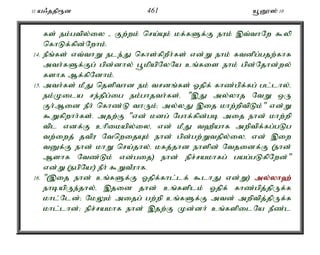 11 யஃததிரூன 461 யூனுஸ் 10
கள் நம்பவில்லை. குற்றம் செய்யும் மக்களுக்கு நாம் இவ்வாறே கூலி
கொடுக்கின்றோம்.
14. நீங்கள் எவ்வாறு நடந்து கொள்கிறீர்கள் என்று நாம் கவனிப்பதற்காக
அவர்களுக்குப் பின்னால் பூமியிலேயே உங்களை நாம் பின்தோன்றல்
களாக ஆக்கினோம்.
15. அவர்கள் மீது தெளிவான நம் வசனங்கள் ஓதிக் காண்பிக்கப் பட்டால்,
நம்முடைய சந்திப்பை நம்பாதவர்கள், "இது அல்லாத வேறு ஒரு
குர்ஆனை நீர் கொண்டு வாரும்; அல்லது இதை மாற்றிவிடும்" என்று
கூறுகிறார்கள். அதற்கு "என் மனப் போக்கின்படி அதை நான் மாற்றி
விட எனக்கு உரிமையில்லை, என் மீது வஹீயாக அறிவிக்கப்படுப
வற்றைத் தவிர வேறெதையும் நான் பின்பற்றுவதில்லை, என் இறை
வனுக்கு நான் மாறு செய்தால், மகத்தான நாளின் வேதனைக்கு (நான்
ஆளாக வேண்டும் என்பதை) நான் நிச்சயமாகப் பயப்படுகிறேன்"
என்று (நபியே!) நீர் கூறுவீராக.
16. "(இதை நான் உங்களுக்கு ஓதிக்காட்டக் கூடாது என்று) அல்லாஹ்
நாடியிருந்தால், இதனை நான் உங்களிடம் ஓதிக் காண்பித்திருக்க
மாட்டேன்; மேலும் அதைப் பற்றி உங்களுக்கு அவன் அறிவித்திருக்க
மாட்டான்; நிச்சயமாக நான் இதற்கு முன்னர் உங்களிடையே நீண்ட